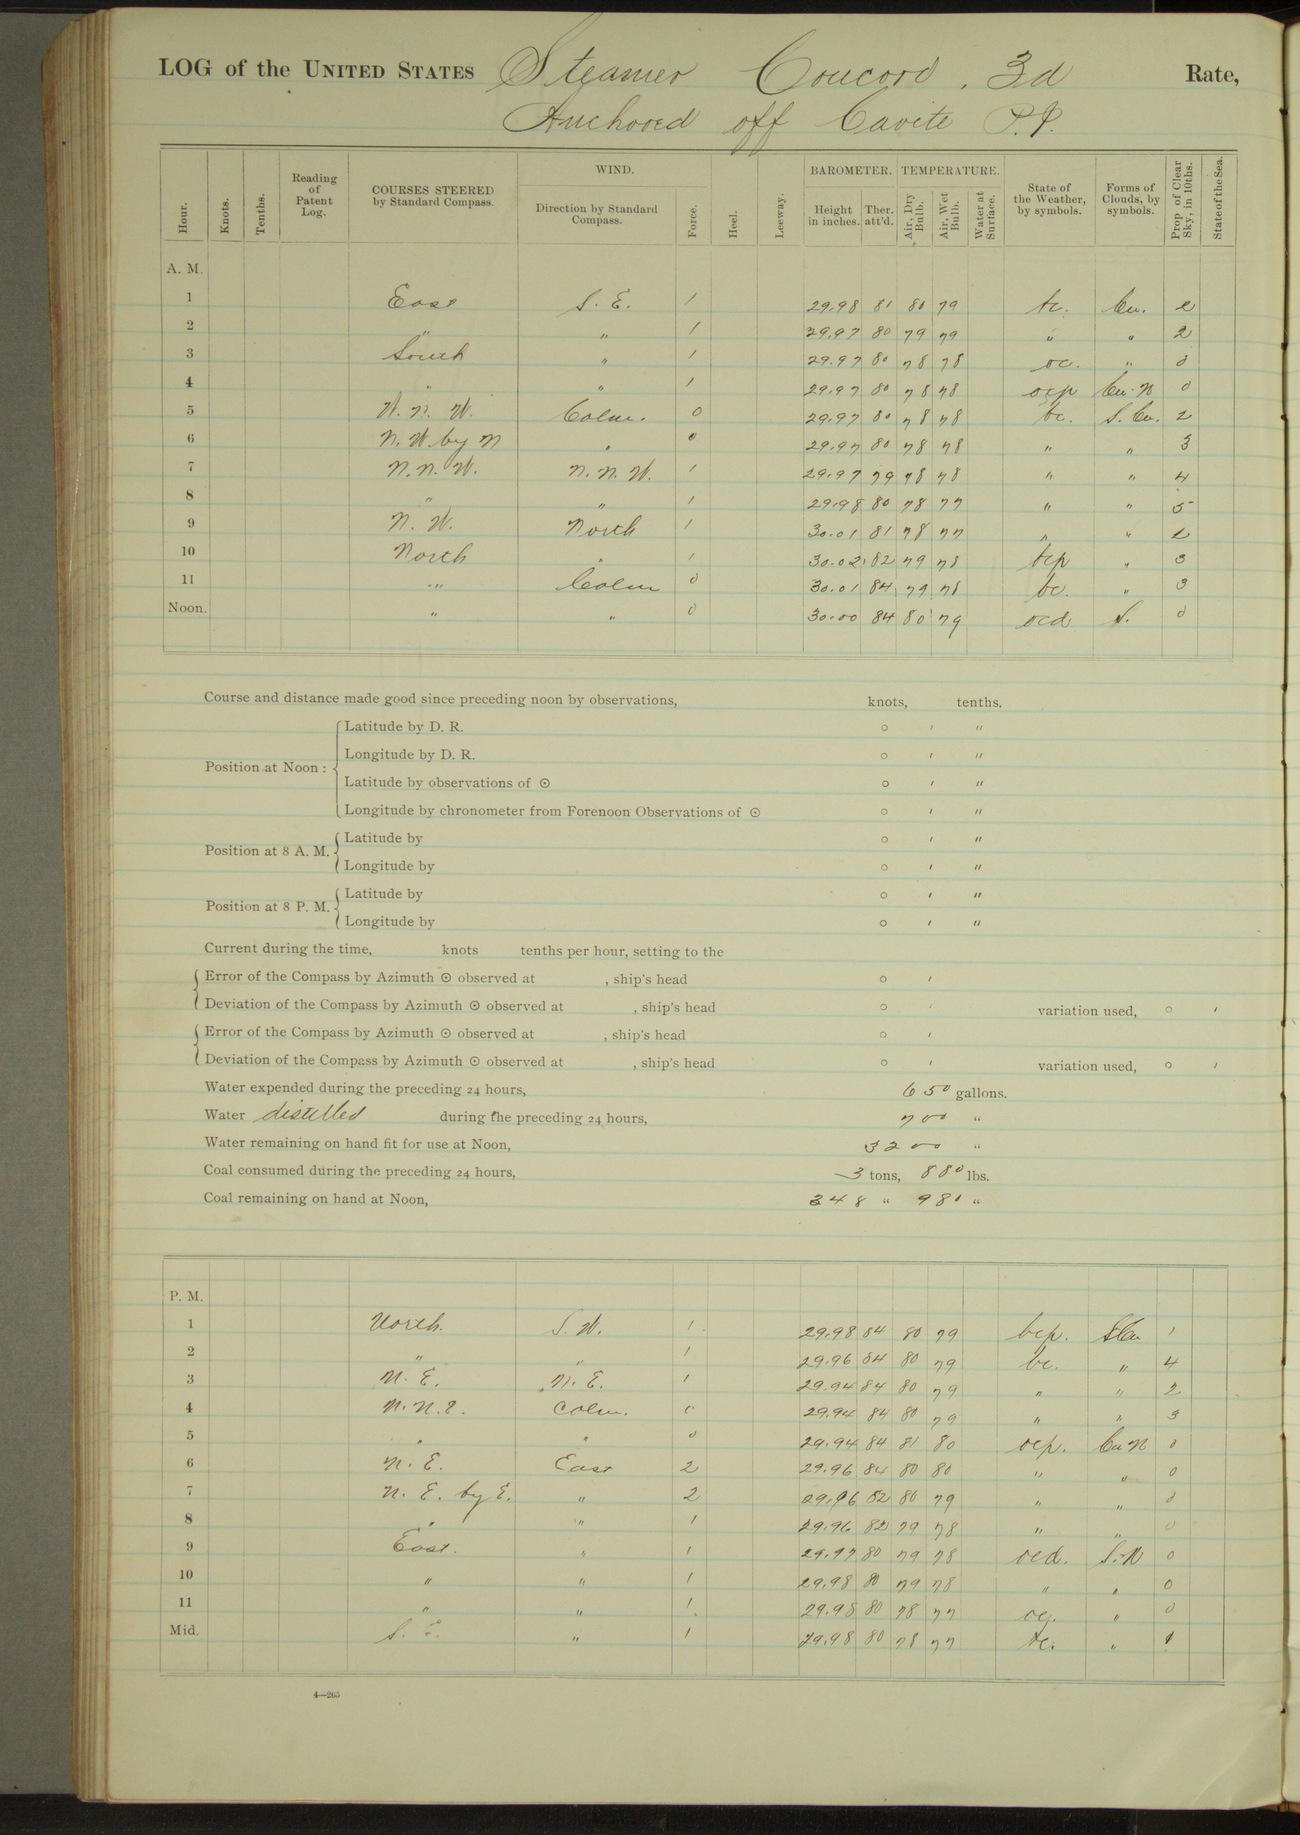 LOG of the UNITED STATES Steamer Concord, 3d Rate,
Anchored off Cavite P.I.
Hour. Knots. Tenths. Reading of Patent Log. COURSES STEERED by Standard Compass. WIND. Direction by Standard Compass. Force. Heel. Leeway. BAROMETER. Height in inches. Ther. att'd. TEMPERATURE. Air, Dry Bulb. Air, Wet Bulb. Water at Surface. State of the Weather, by symbols. Forms of Clouds, by symbols. Prop. of Clear Sky, in 10ths. State of the Sea.
A. M.
1 East S. E. 1 29.98 81 80 79 bc. Cu. 2
2 " " 1 29.97 80 79 79 " " 2
3 South " 1 29.97 80 78 78 oc. " 0
4 " " 1 29.97 80 78 78 ocp Cu-N 0
5 W. N. W. Calm. 0 29.97 80 78 78 bc. S. Cu. 2
6 N. W. by N " 0 29.97 80 78 78 " " 3
7 N. N. W. N. N. W. 1 29.97 79 78 78 " " 4
8 " " 1 29.98 80 78 77 " " 5
9 N. W. North 1 30.01 81 78 77 " " 2
10 North " 1 30.02 82 79 78 bcp " 3
11 " Calm 0 30.01 84 79 78 bc. " 3
Noon. " " 0 30.00 84 80 79 ocd S. 0
Course and distance made good since preceding noon by observations, knots, tenths.
Position at Noon: Latitude by D. R. ° ′ ″
Longitude by D. R. ° ′ ″
Latitude by observations of ☉ ° ′ ″
Longitude by chronometer from Forenoon Observations of ☉ ° ′ ″
Position at 8 A. M. Latitude by ° ′ ″
Longitude by ° ′ ″
Position at 8 P. M. Latitude by ° ′ ″
Longitude by ° ′ ″
Current during the time, knots tenths per hour, setting to the
Error of the Compass by Azimuth ☉ observed at , ship's head ° ′
Deviation of the Compass by Azimuth ☉ observed at , ship's head ° ′ variation used, ° ′
Error of the Compass by Azimuth ☉ observed at , ship's head ° ′
Deviation of the Compass by Azimuth ☉ observed at , ship's head ° ′ variation used, ° ′
Water expended during the preceding 24 hours, 650 gallons.
Water distilled during the preceding 24 hours, 700 "
Water remaining on hand fit for use at Noon, 3200 "
Coal consumed during the preceding 24 hours, 3 tons, 880 lbs.
Coal remaining on hand at Noon, 348 " 980 "
P. M.
1 North. S. W. 1 29.98 84 80 79 bcp. SCu 1
2 " " 1 29.96 84 80 79 bc. " 4
3 N. E. N. E. 1 29.94 84 80 79 " " 2
4 N. N. E. Calm. 0 29.94 84 80 79 " " 3
5 " " 0 29.94 84 81 80 ocp. Cu N 0
6 N. E. East 2 29.96 84 80 80 " " 0
7 N. E. by E. " 2 29.96 82 80 79 " " 0
8 " " 1 29.96 82 79 78 " " 0
9 East. " 1 29.97 80 79 78 ocd. S.-N 0
10 " " 1 29.98 80 79 78 " " 0
11 " " 1 29.98 80 78 77 oc. " 0
Mid. S. E. " 1 29.98 80 78 77 bc. " 1
4—265